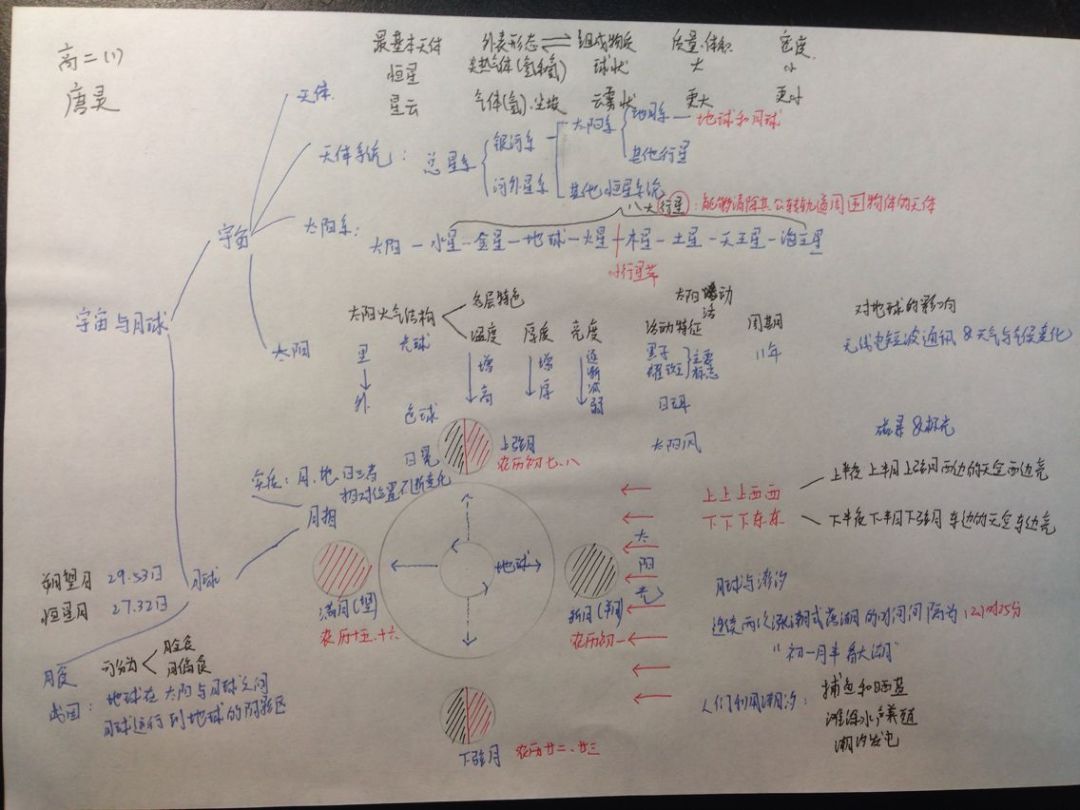 高二(1)
唐灵
最基本天体 外表形态⇌组成物质 质量·体积 密度
恒星 炙热气体(氢和氦) 球状 大 小
星云 气体(氢)·尘埃 云雾状 更大 更小
天体
天体系统: 总星系 银河系 太阳系 地月系—地球和月球
其他行星
河外星系 其他恒星系统
八大行星: 能够清除其公转轨道周围物体的天体
太阳系:
太阳—水星—金星—地球—火星+木星—土星—天王星—海王星
小行星带
宇宙
宇宙与月球
太阳
太阳大气结构 各层特色 太阳活动 对地球的影响
里 光球 温度 厚度 亮度 活动特征 周期 无线电短波通讯&天气与气候变化
↓ 增高 增厚 逐渐减弱 黑子 耀斑 主要标志 11年
外 色球 日珥
日冕 太阳风 磁暴&极光
上弦月
农历初七、八
实在:月、地、日三者
相对位置不断变化
月相
上上上西西 上半夜上半月上弦月西边的天空西边亮
下下下东东 下半夜下半月下弦月东边的天空东边亮
太阳光
地球
满月(望)
农历十五、十六
新月(朔)
农历初一
朔望月 29.53日
恒星月 27.32日
月球
月球与潮汐
连续两次涨潮或落潮的时间间隔为12时25分
“初一月半看大潮”
人们利用潮汐: 捕鱼和晒盐
滩涂水产养殖
潮汐发电
月食 可分为 月全食
月偏食
成因: 地球在太阳与月球之间
月球运行到地球的阴影区
下弦月 农历廿二、廿三